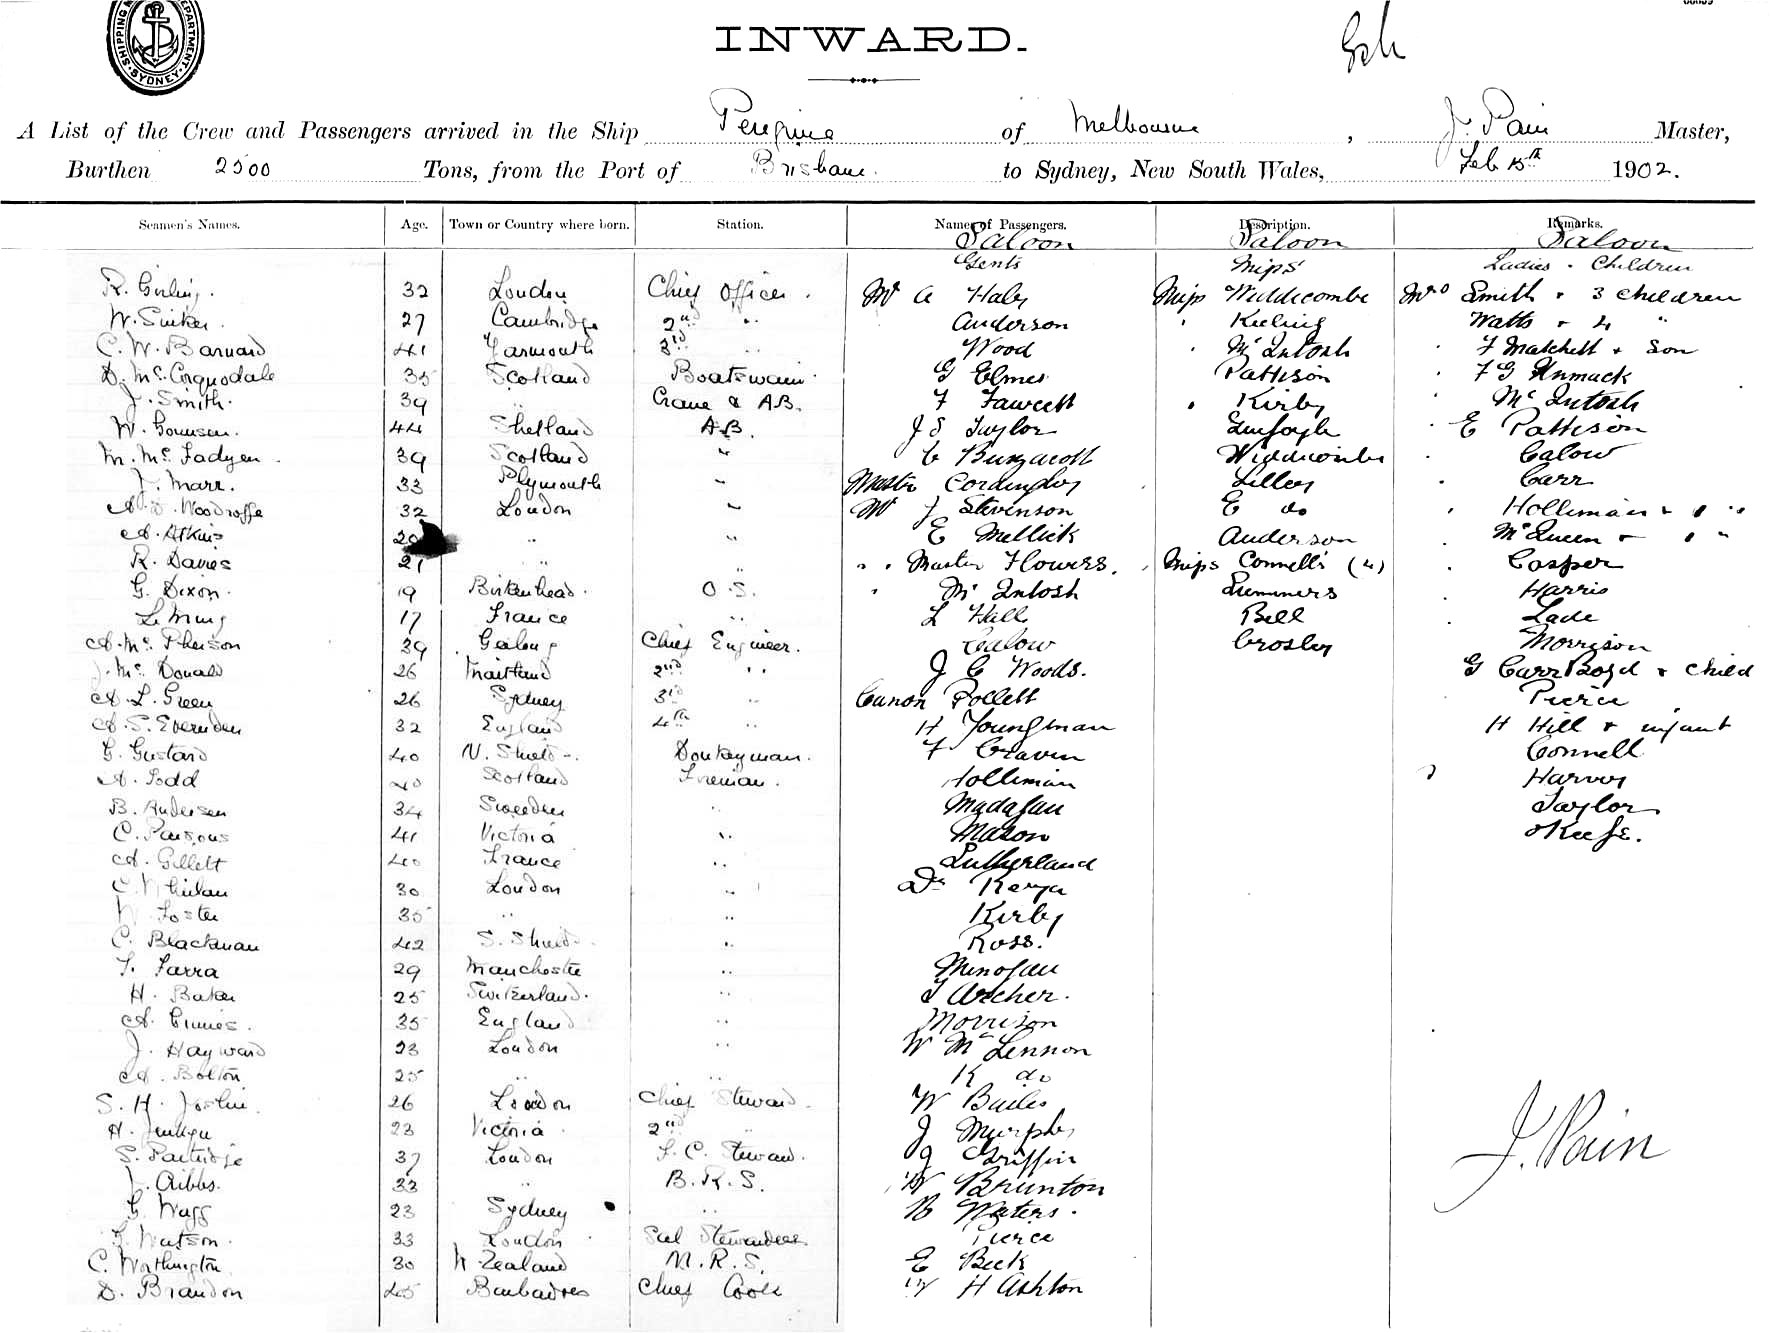 SHIPPING MASTER'S DEPARTMENT · SYDNEY ·
INWARD.
A List of the Crew and Passengers arrived in the Ship Peregrine of Melbourne, J. Pain Master,
Burthen 2500 Tons, from the Port of Brisbane. to Sydney, New South Wales, Feb 15th 1902.
Seamen's Names. Age. Town or Country where born. Station. Names of Passengers. Description. Remarks.
Saloon Saloon Saloon
Gents Miss Ladies & Children
R. Girling. 32 London Chief Officer. Mr A Haly Miss Widdicombe Mrs Smith & 3 children
W. Sinker. 27 Cambridge 2nd " Anderson " Keeling Watts & 4 "
C. W. Barnard 41 Yarmouth 3rd " Wood " McIntosh " F Matchett & Son
D. McCorquodale 35 Scotland Boatswain. G Elmes Pattison " F G Unmack
J. Smith. 39 " Crane & A.B. F Fawcett " Kirby " McIntosh
W. Gounsen. 44 Shetland A.B. J S Taylor " E Pattison
M. McFadyen. 39 Scotland " C Buzacott Widdicombe " Calow
J. Marr. 33 Plymouth " Master Cordingley " Lilley " Carr
A. D. Woodroffe 32 London " Mr J Stevenson E do " Holliman & 1 "
A. Atkins 20 " " E Mellick Anderson McQueen & 1 "
R. Davies 21 " " " " Master Flowers. " Miss Connell's (4) " Casper
G. Dixon. 19 Birkenhead. O.S. " McIntosh Summers " Harris
L. Ming 17 France " L Hall Bell " Lade
A. McPherson 39 Geelong Chief Engineer. Calow Crosley Morrison
J. McDonald 26 Maitland 2nd " J C Woods. G Carr Boyd & Child
A. L. Green 26 Sydney 3rd " Canon Pollett Pierce
A. S. Evernden 32 England 4th " H Youngman H Hill & infant
G. Gustard 40 N. Shields. Donkeyman. F Craven Connell
A. Todd 40 Scotland Fireman. Holliman " Harvey
B. Andersen 34 Sweden " Madafan Taylor
C. Parsons 41 Victoria " Mason O'Keefe.
A. Gillett 40 France " Sutherland
C. Whinlan 30 London " Dr
W. Foster 35 " " Kirby
C. Blackman 42 S. Shields " Ross.
T. Farra 29 Manchester " Minofau
H. Baker 25 Switzerland. " T Archer.
A. 35 England " Morrison
J. Hayward 23 London " W McLennon
A. Bolton 25 " " K do
S. H. Joslin. 26 London Chief Steward. W Bailes
H. 23 Victoria. 2nd " J Murphy
S. Partridge 37 London F. C. Steward. J Griffin
J. Gibbs. 33 " B.R.S. W Brunton
G. Wagg 23 Sydney " B Waters.
F. Watson. 33 London Sal Stewardess. Pierce
C. Worthington. 30 N Zealand M.R.S. E Beck
D. Brandon 45 Barbadoes Chief Cook W H Ashton
J. Pain